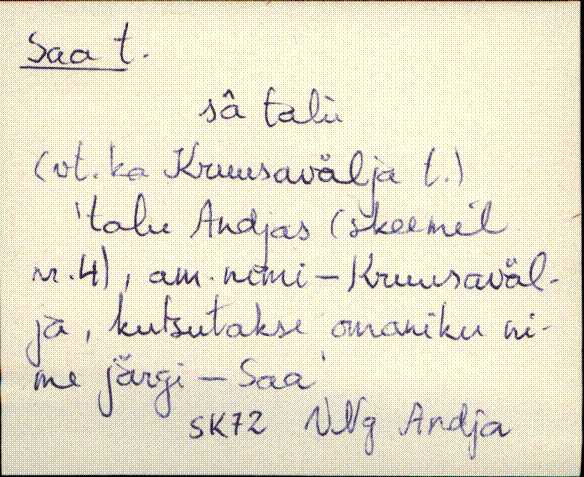 Saa t.
sâ talu
(vt. ka Kruusavälja t.)
'talu Andjas (skeemil
nr. 4), am. nimi – Kruusaväl-
ja, kutsutakse omaniku ni-
me järgi – Saa'
SK72 VNg Andja